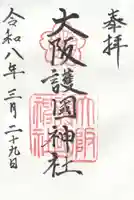 奉拝
大阪護國神社
令和八年三月二十九日